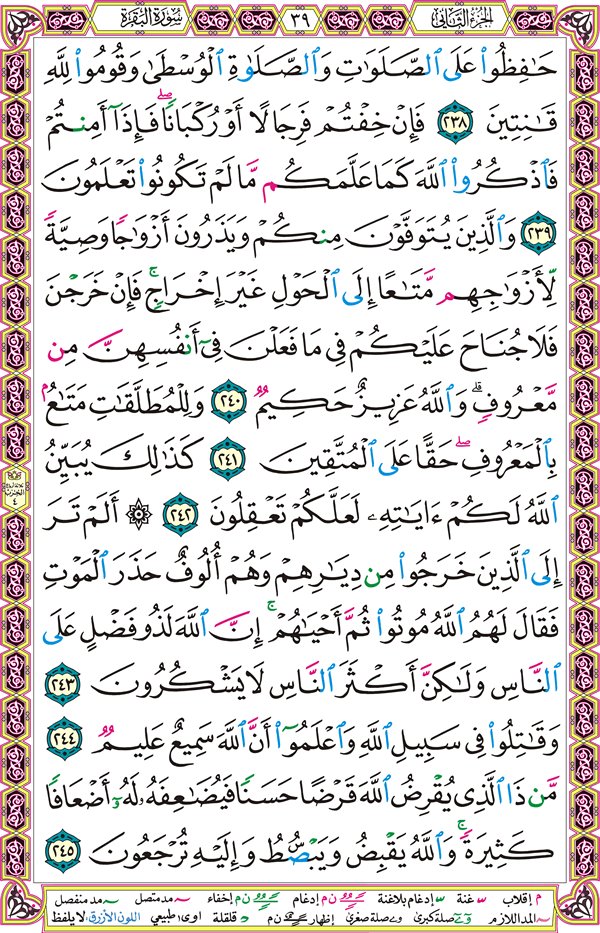 الجزء الثاني ٣٩ سورة البقرة
حَـٰفِظُوا۟ عَلَى ٱلصَّلَوَٰتِ وَٱلصَّلَوٰةِ ٱلْوُسْطَىٰ وَقُومُوا۟ لِلَّهِ
قَـٰنِتِينَ ٢٣٨ فَإِنْ خِفْتُمْ فَرِجَالًا أَوْ رُكْبَانًا ۖ فَإِذَآ أَمِنتُمْ
فَٱذْكُرُوا۟ ٱللَّهَ كَمَا عَلَّمَكُم مَّا لَمْ تَكُونُوا۟ تَعْلَمُونَ
٢٣٩ وَٱلَّذِينَ يُتَوَفَّوْنَ مِنكُمْ وَيَذَرُونَ أَزْوَٰجًا وَصِيَّةً
لِّأَزْوَٰجِهِم مَّتَـٰعًا إِلَى ٱلْحَوْلِ غَيْرَ إِخْرَاجٍ ۚ فَإِنْ خَرَجْنَ
فَلَا جُنَاحَ عَلَيْكُمْ فِى مَا فَعَلْنَ فِىٓ أَنفُسِهِنَّ مِن
مَّعْرُوفٍ ۗ وَٱللَّهُ عَزِيزٌ حَكِيمٌ ٢٤٠ وَلِلْمُطَلَّقَـٰتِ مَتَـٰعٌۢ
بِٱلْمَعْرُوفِ ۖ حَقًّا عَلَى ٱلْمُتَّقِينَ ٢٤١ كَذَٰلِكَ يُبَيِّنُ
ٱللَّهُ لَكُمْ ءَايَـٰتِهِۦ لَعَلَّكُمْ تَعْقِلُونَ ٢٤٢ ۞ أَلَمْ تَرَ
إِلَى ٱلَّذِينَ خَرَجُوا۟ مِن دِيَـٰرِهِمْ وَهُمْ أُلُوفٌ حَذَرَ ٱلْمَوْتِ
فَقَالَ لَهُمُ ٱللَّهُ مُوتُوا۟ ثُمَّ أَحْيَـٰهُمْ ۚ إِنَّ ٱللَّهَ لَذُو فَضْلٍ عَلَى
ٱلنَّاسِ وَلَـٰكِنَّ أَكْثَرَ ٱلنَّاسِ لَا يَشْكُرُونَ ٢٤٣
وَقَـٰتِلُوا۟ فِى سَبِيلِ ٱللَّهِ وَٱعْلَمُوٓا۟ أَنَّ ٱللَّهَ سَمِيعٌ عَلِيمٌ ٢٤٤
مَّن ذَا ٱلَّذِى يُقْرِضُ ٱللَّهَ قَرْضًا حَسَنًا فَيُضَـٰعِفَهُۥ لَهُۥٓ أَضْعَافًا
كَثِيرَةً ۚ وَٱللَّهُ يَقْبِضُ وَيَبْصُۜطُ وَإِلَيْهِ تُرْجَعُونَ ٢٤٥
م إقلاب غنة إدغام بلاغنة ن م إدغام ن م إخفاء مد متصل مد منفصل
المد اللازم صلة كبرى صلة صغرى إظهار ن م قلقلة اوى: طبيعي اللون الأزرق: لا يلفظ